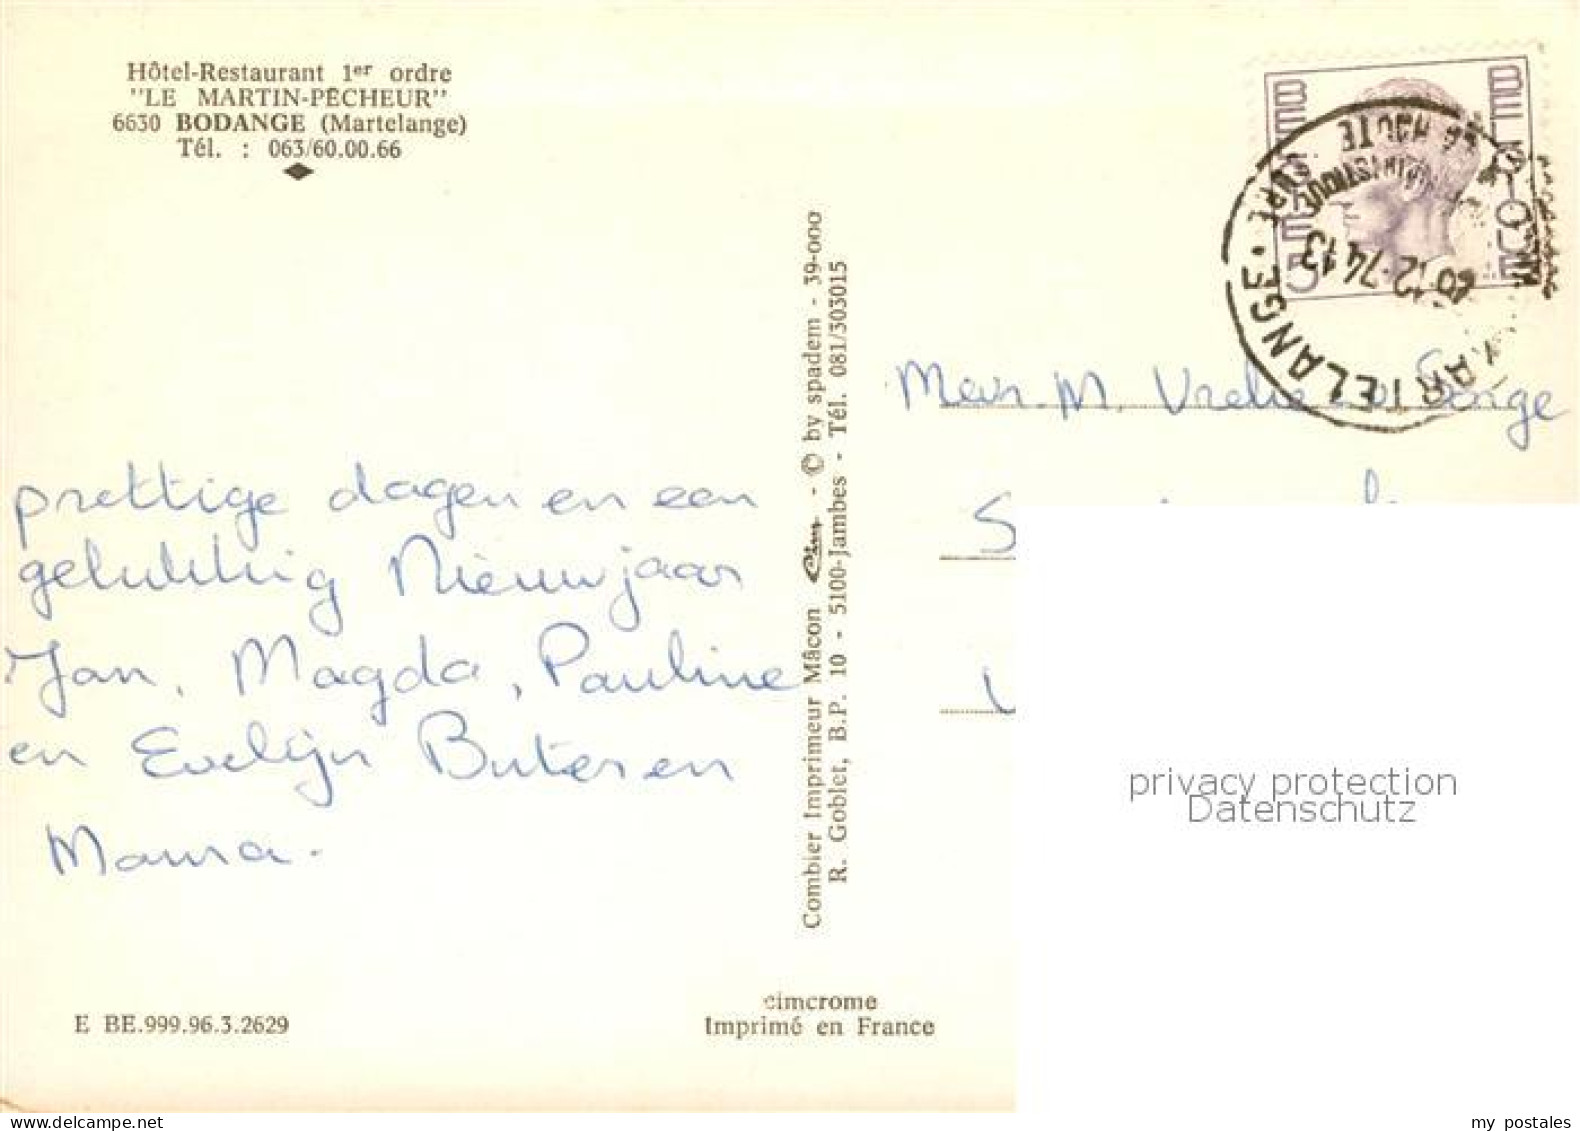 Hôtel-Restaurant 1er ordre
"LE MARTIN-PÊCHEUR"
6630 BODANGE (Martelange)
Tél. : 063/60.00.66
prettige dagen en een
gelukkig Nieuwjaar
Jan, Magda, Pauline
en Evelijn Buteren
Mama.
E BE.999.96.3.2629
Combier Imprimeur Mâcon Cim - © by spadem - 39-000
R. Goblet, B.P. 10 - 5100-Jambes - Tél. 081/303015
cimcrome
Imprimé en France
BELGIE
BELGIQUE
5F
MARTELANGE
HAUTE SURE
12-74 13
M.
privacy protection
Datenschutz
my postales